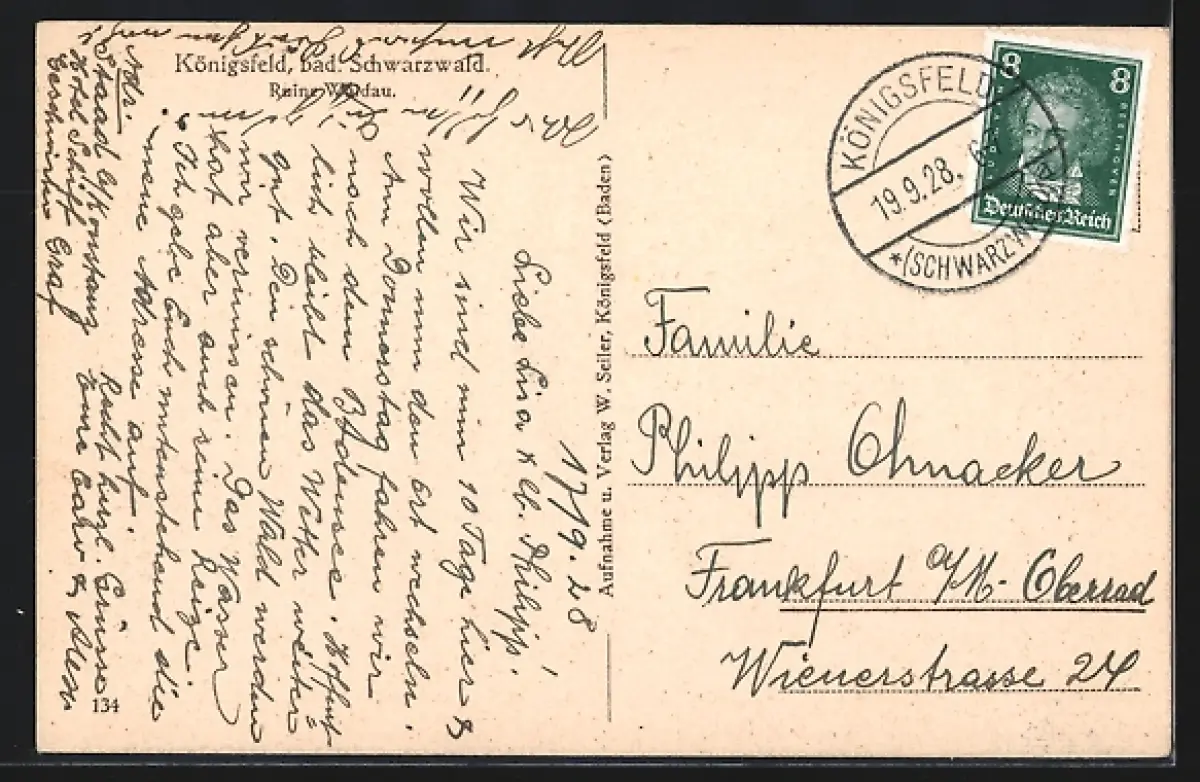 Königsfeld, bad. Schwarzwald.
Ruine Waldau.
17/9.28
Liebe Lina & lb. Philipp!
Wir sind nun 10 Tage hier &
wollen nun den Ort wechseln.
Am Donnerstag fahren wir
noch dem Bodensee. Hoffent=
lich bleibt das Wetter weiter
gut. Den schönen Wald werden
wir vermissen. Das Wasser
hat aber auch seine Reize.
Ich gebe Euch untenstehend die
meine Adresse auf
Recht herzl. Grüsse
Eure
Adr.
Staad b/Konstanz
Hotel Schiff
Geschwister Graf
134
Aufnahme u. Verlag W. Seiler, Königsfeld (Baden)
KÖNIGSFELD
19.9.28.
*(SCHWARZWALD)
8 8
LUDWIG VAN BEETHOVEN
Deutsches Reich
Familie
Philipp Ohnacker
Frankfurt a/M- Oberrad
Wienerstrasse 24